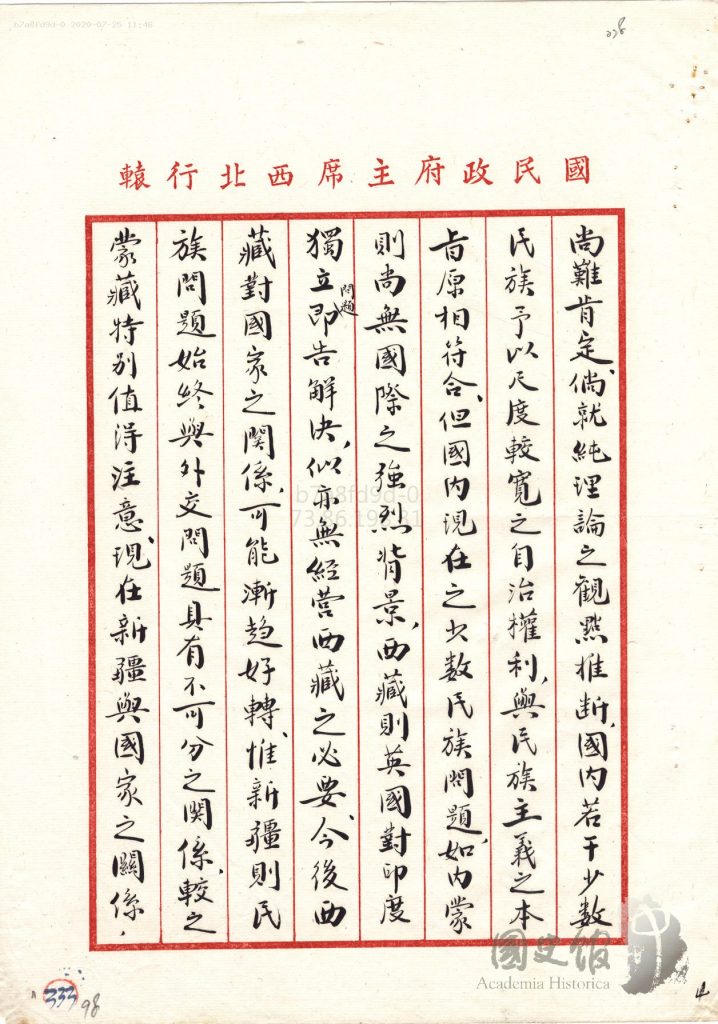 b7a8fd9d-0 2020-07-25 11:46
238
國民政府主席西北行轅
尚難肯定、倘就純理論之觀點推斷、國內若干少数
民族予以尺度較寬之自治權利、與民族主義之本
旨原相符合、但國內現在之少数民族問題、如內蒙
則尚無國際之強烈背景、西藏則英國對印度
獨立問題即告解決、似亦無經营西藏之必要、今後西
藏對國家之関係、可能漸趋好轉、惟新疆則民
族問題始終與外交問題具有不可分之関係、較之
蒙藏特別值得注意、現在新疆與國家之關係、
b7a8fd9d-0
國史館
Academia Historica
333
98